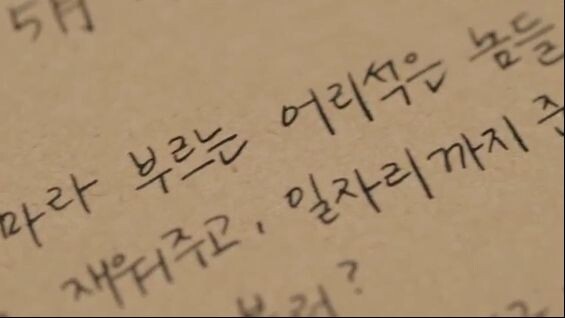 5월
마라 부르는 어리석은 놈들
재워주고, 일자리까지 준